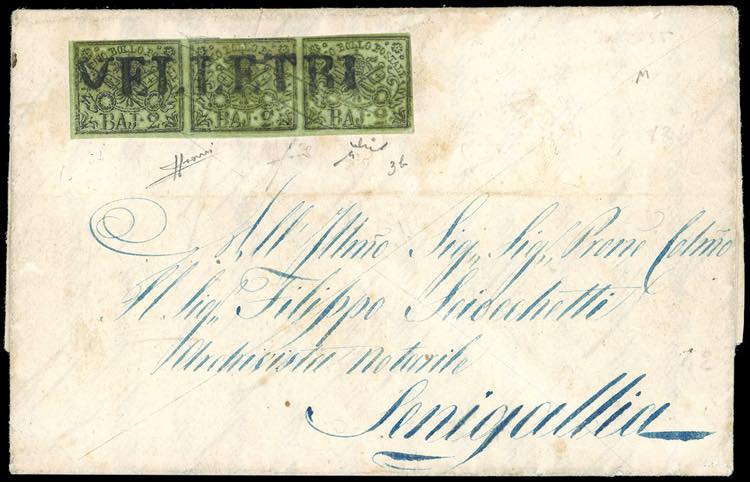 BOLLO PO BOLLO PO BOLLO PO
VELLETRI
BAJ. 2. BAJ. 2. BAJ. 2.
3b
M
All' Illmo Sig. Sig. Prone Colmo
Il Sig. Filippo
Archivista Notarile
Senigallia